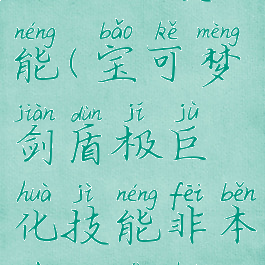 néng bǎo kě mèng
能(宝可梦
jiàn dùn jí jù
剑盾极巨
huà jì néng fēi běn
化技能非本